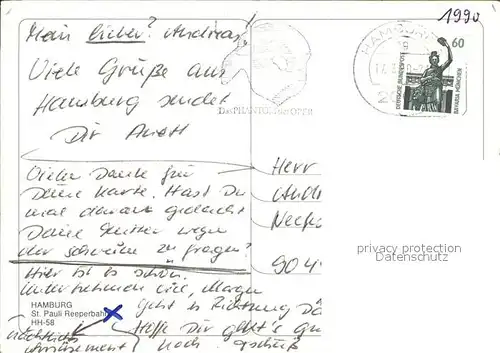 1990
Mein lieber? Andreas!
Viele Grüße aus
Hamburg sendet
Dir Anett
Vielen Dank für
Deine Karte. Hast Du
mal daran gedacht
Deine Mutter wegen
der zu fragen?
Hier ist es schön.
Unternehmen viel, Morgen
geht's Richtung Dä
Hoffe Dir geht's gu
noch
HAMBURG
St. Pauli Reeperbahn
HH-58
Das PHANTOM der OPER
HAMBURG
60
DEUTSCHE BUNDESPOST
BAVARIA MÜNCHEN
Herr
Andr
Necka
904
privacy protection
Datenschutz